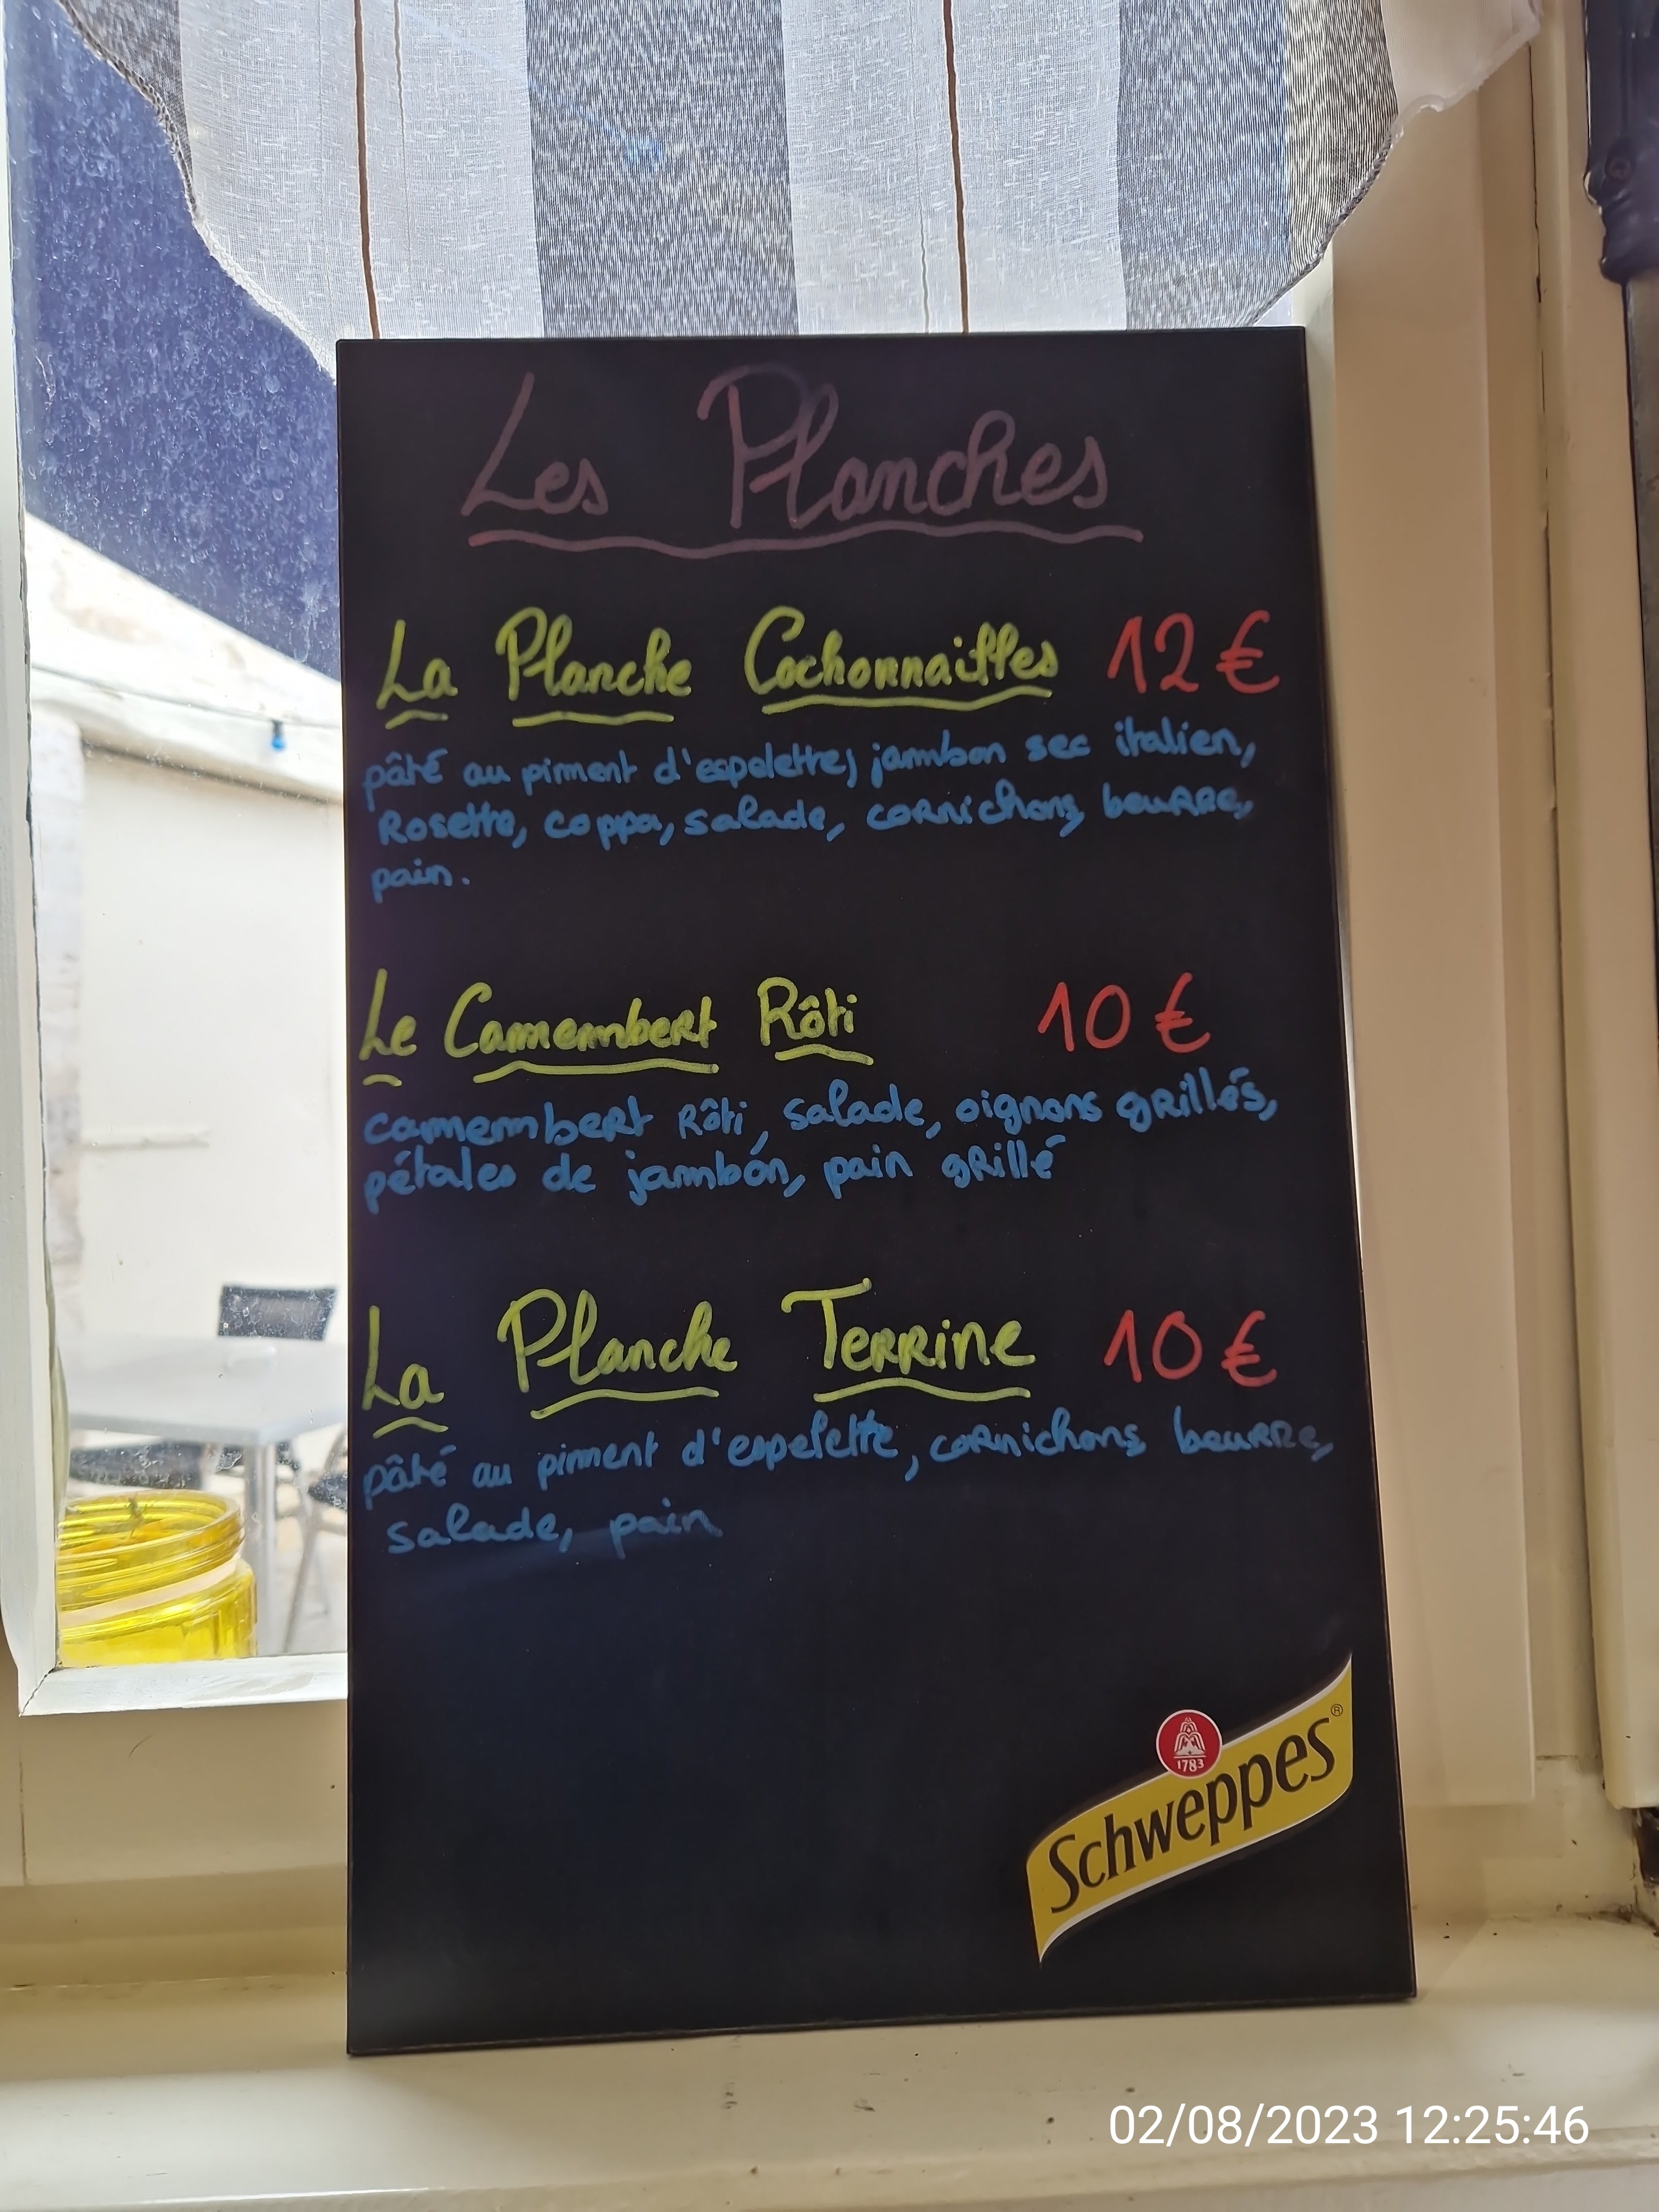 Les Planches
La Planche Cochonnailles 12€
pâté au piment d'espelette, jambon sec italien,
Rosette, coppa, salade, cornichons, beurre,
pain.
Le Camembert Rôti 10€
camembert Rôti, salade, oignons grillés,
pétales de jambon, pain grillé
La Planche Terrine 10€
pâté au piment d'espelette, cornichons beurre,
salade, pain
1783
Schweppes®
02/08/2023 12:25:46